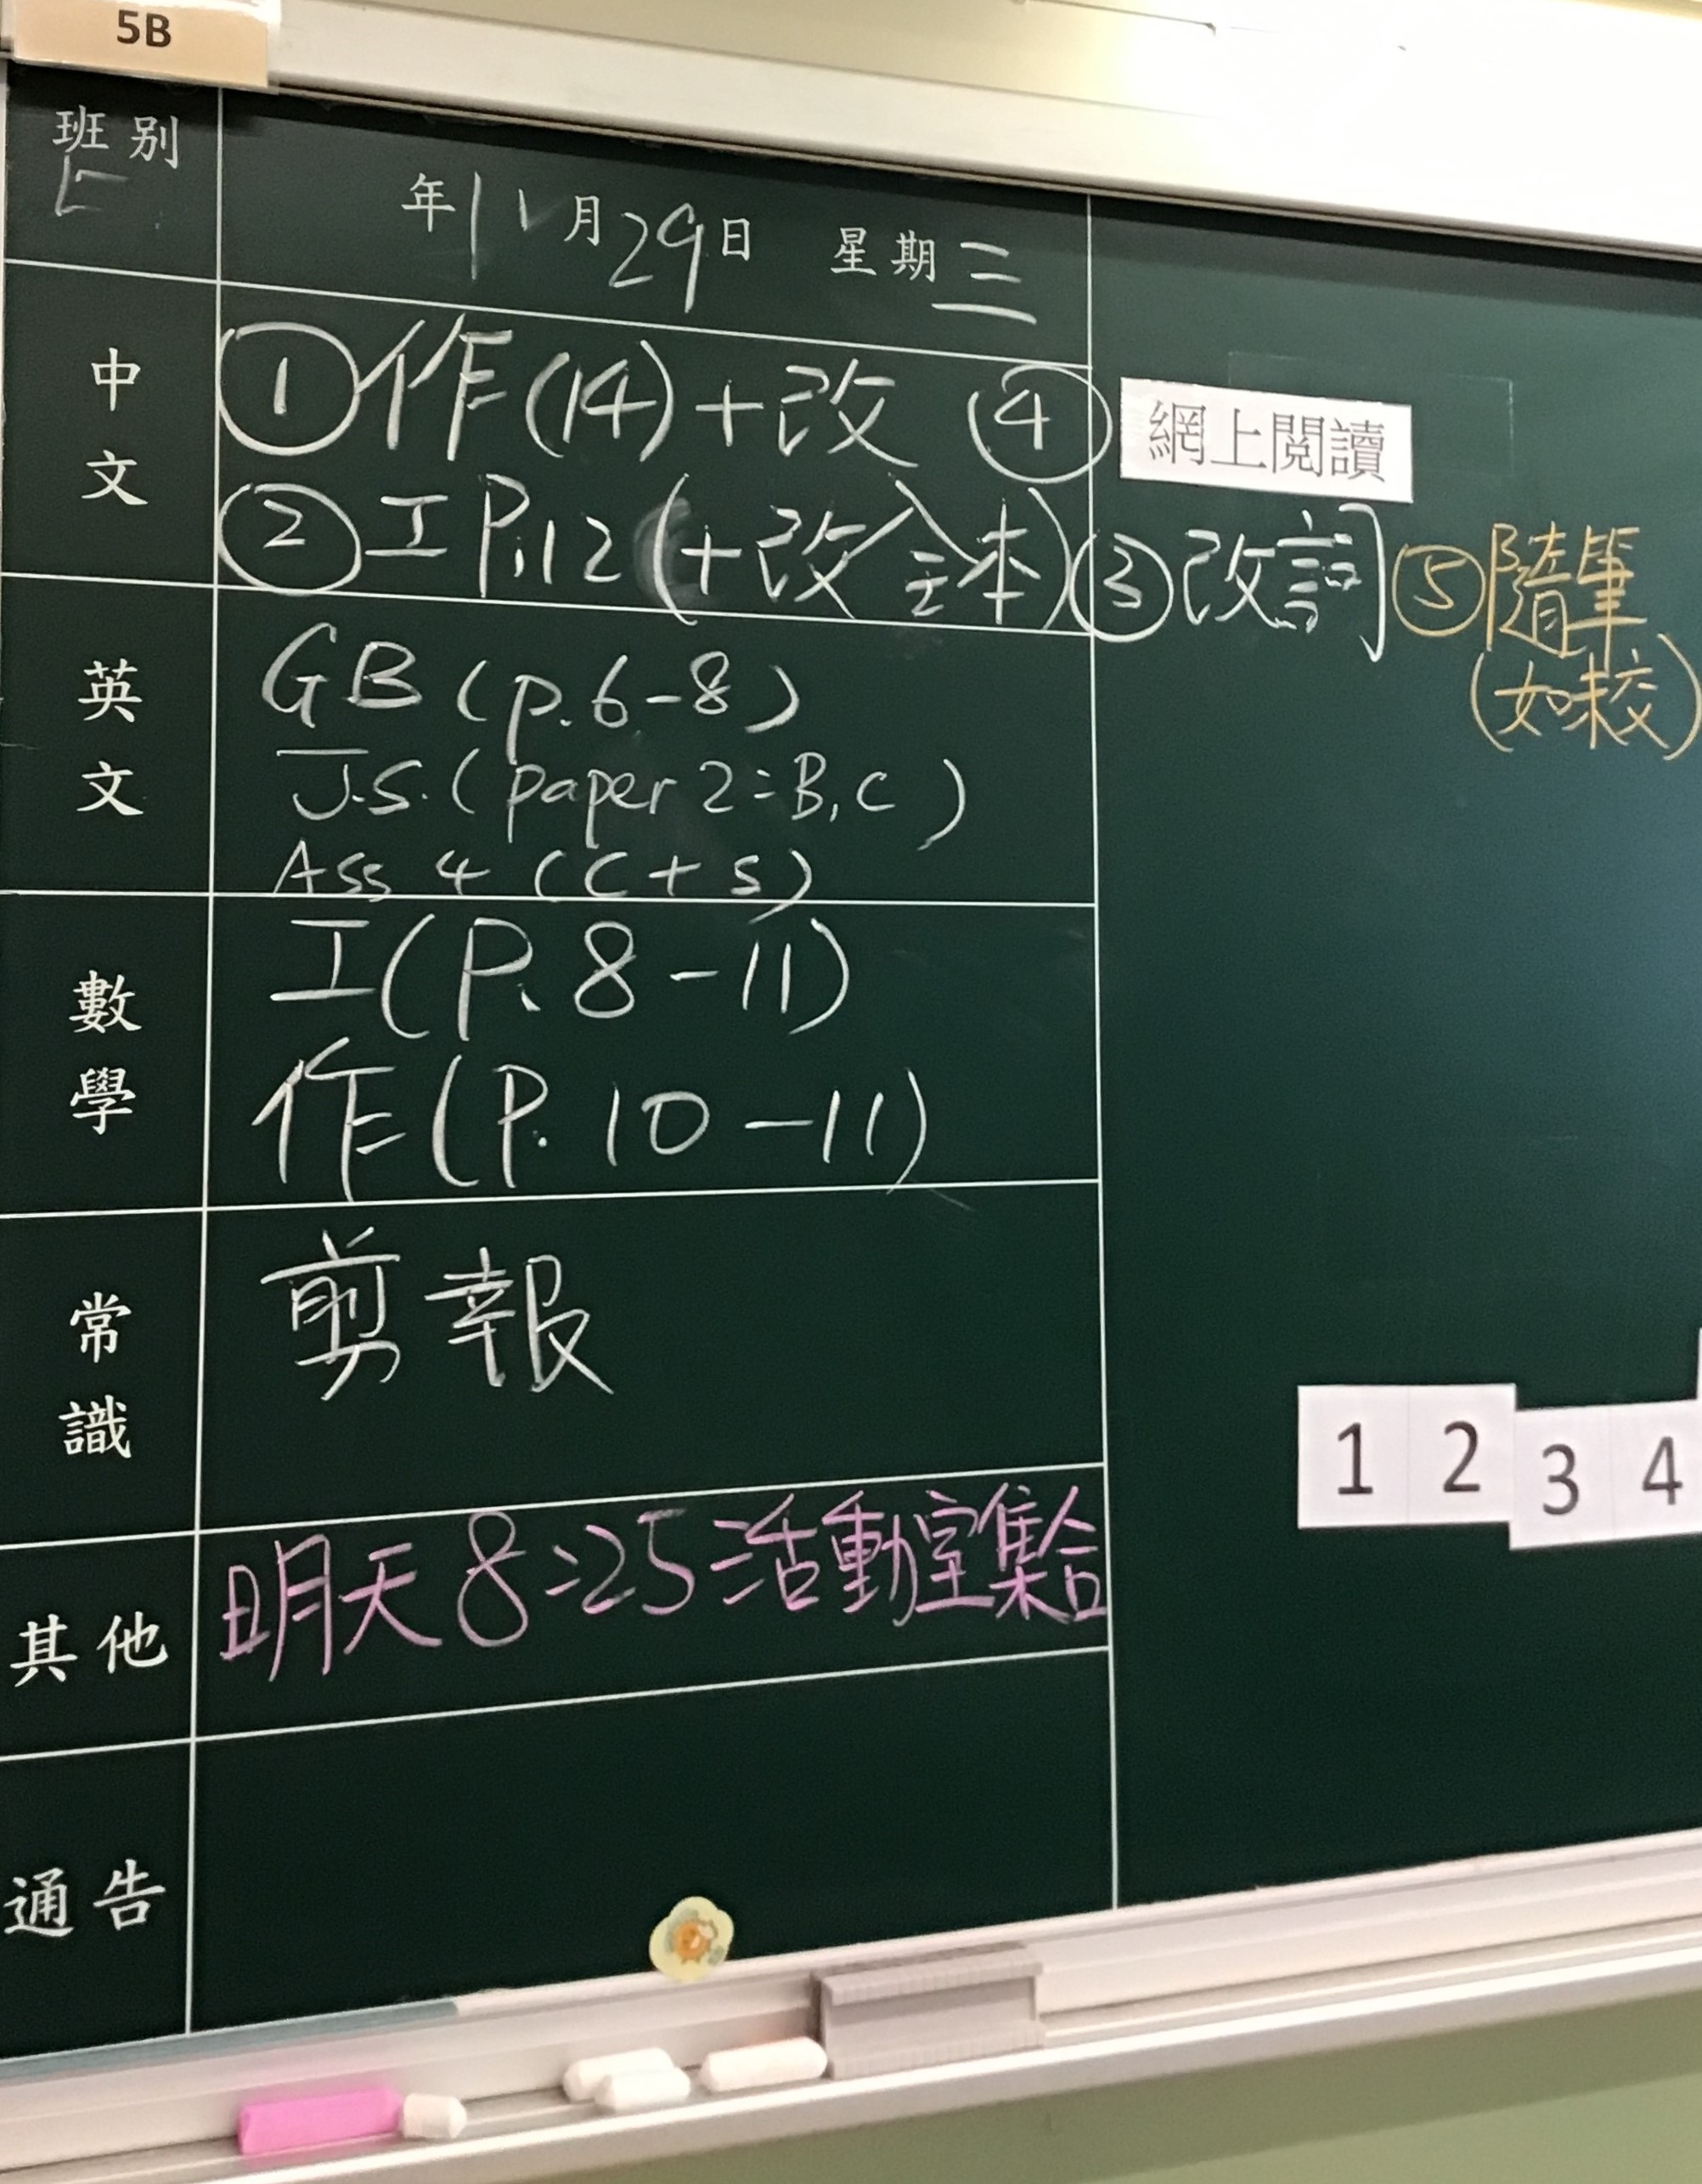 5B
班別
年11月29日 星期三
中文
①作(14)+改 ④網上閱讀
②工P.12(+改全本)③改詞 ⑤隨筆
(如未交)
英文
GB (p.6-8)
J.S. (paper 2=B,C)
Ass 4 (C+S)
數學
工(P.8-11)
作(P.10-11)
常識
剪報
其他
明天8:25活動室集合
通告
1 2 3 4